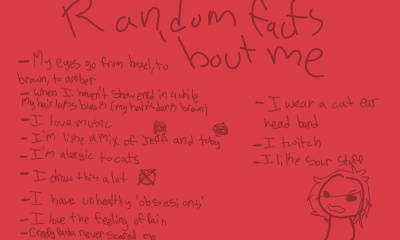 Random facts
bout me
- My eyes go from hazel, to
brown, to amber
- when I haven't showered in awhile
My hair looks black (my hair's dark brown)
- I love music
- I'm like a mix of Jeff and toby
- I'm alergic to cats
- I draw this alot
- I have unhealthy 'obsesions'
- I love the feeling of Pain
- Creepy Pasta never scared me
- I wear a cat ear
head band
- I twitch
- I like sour stuff